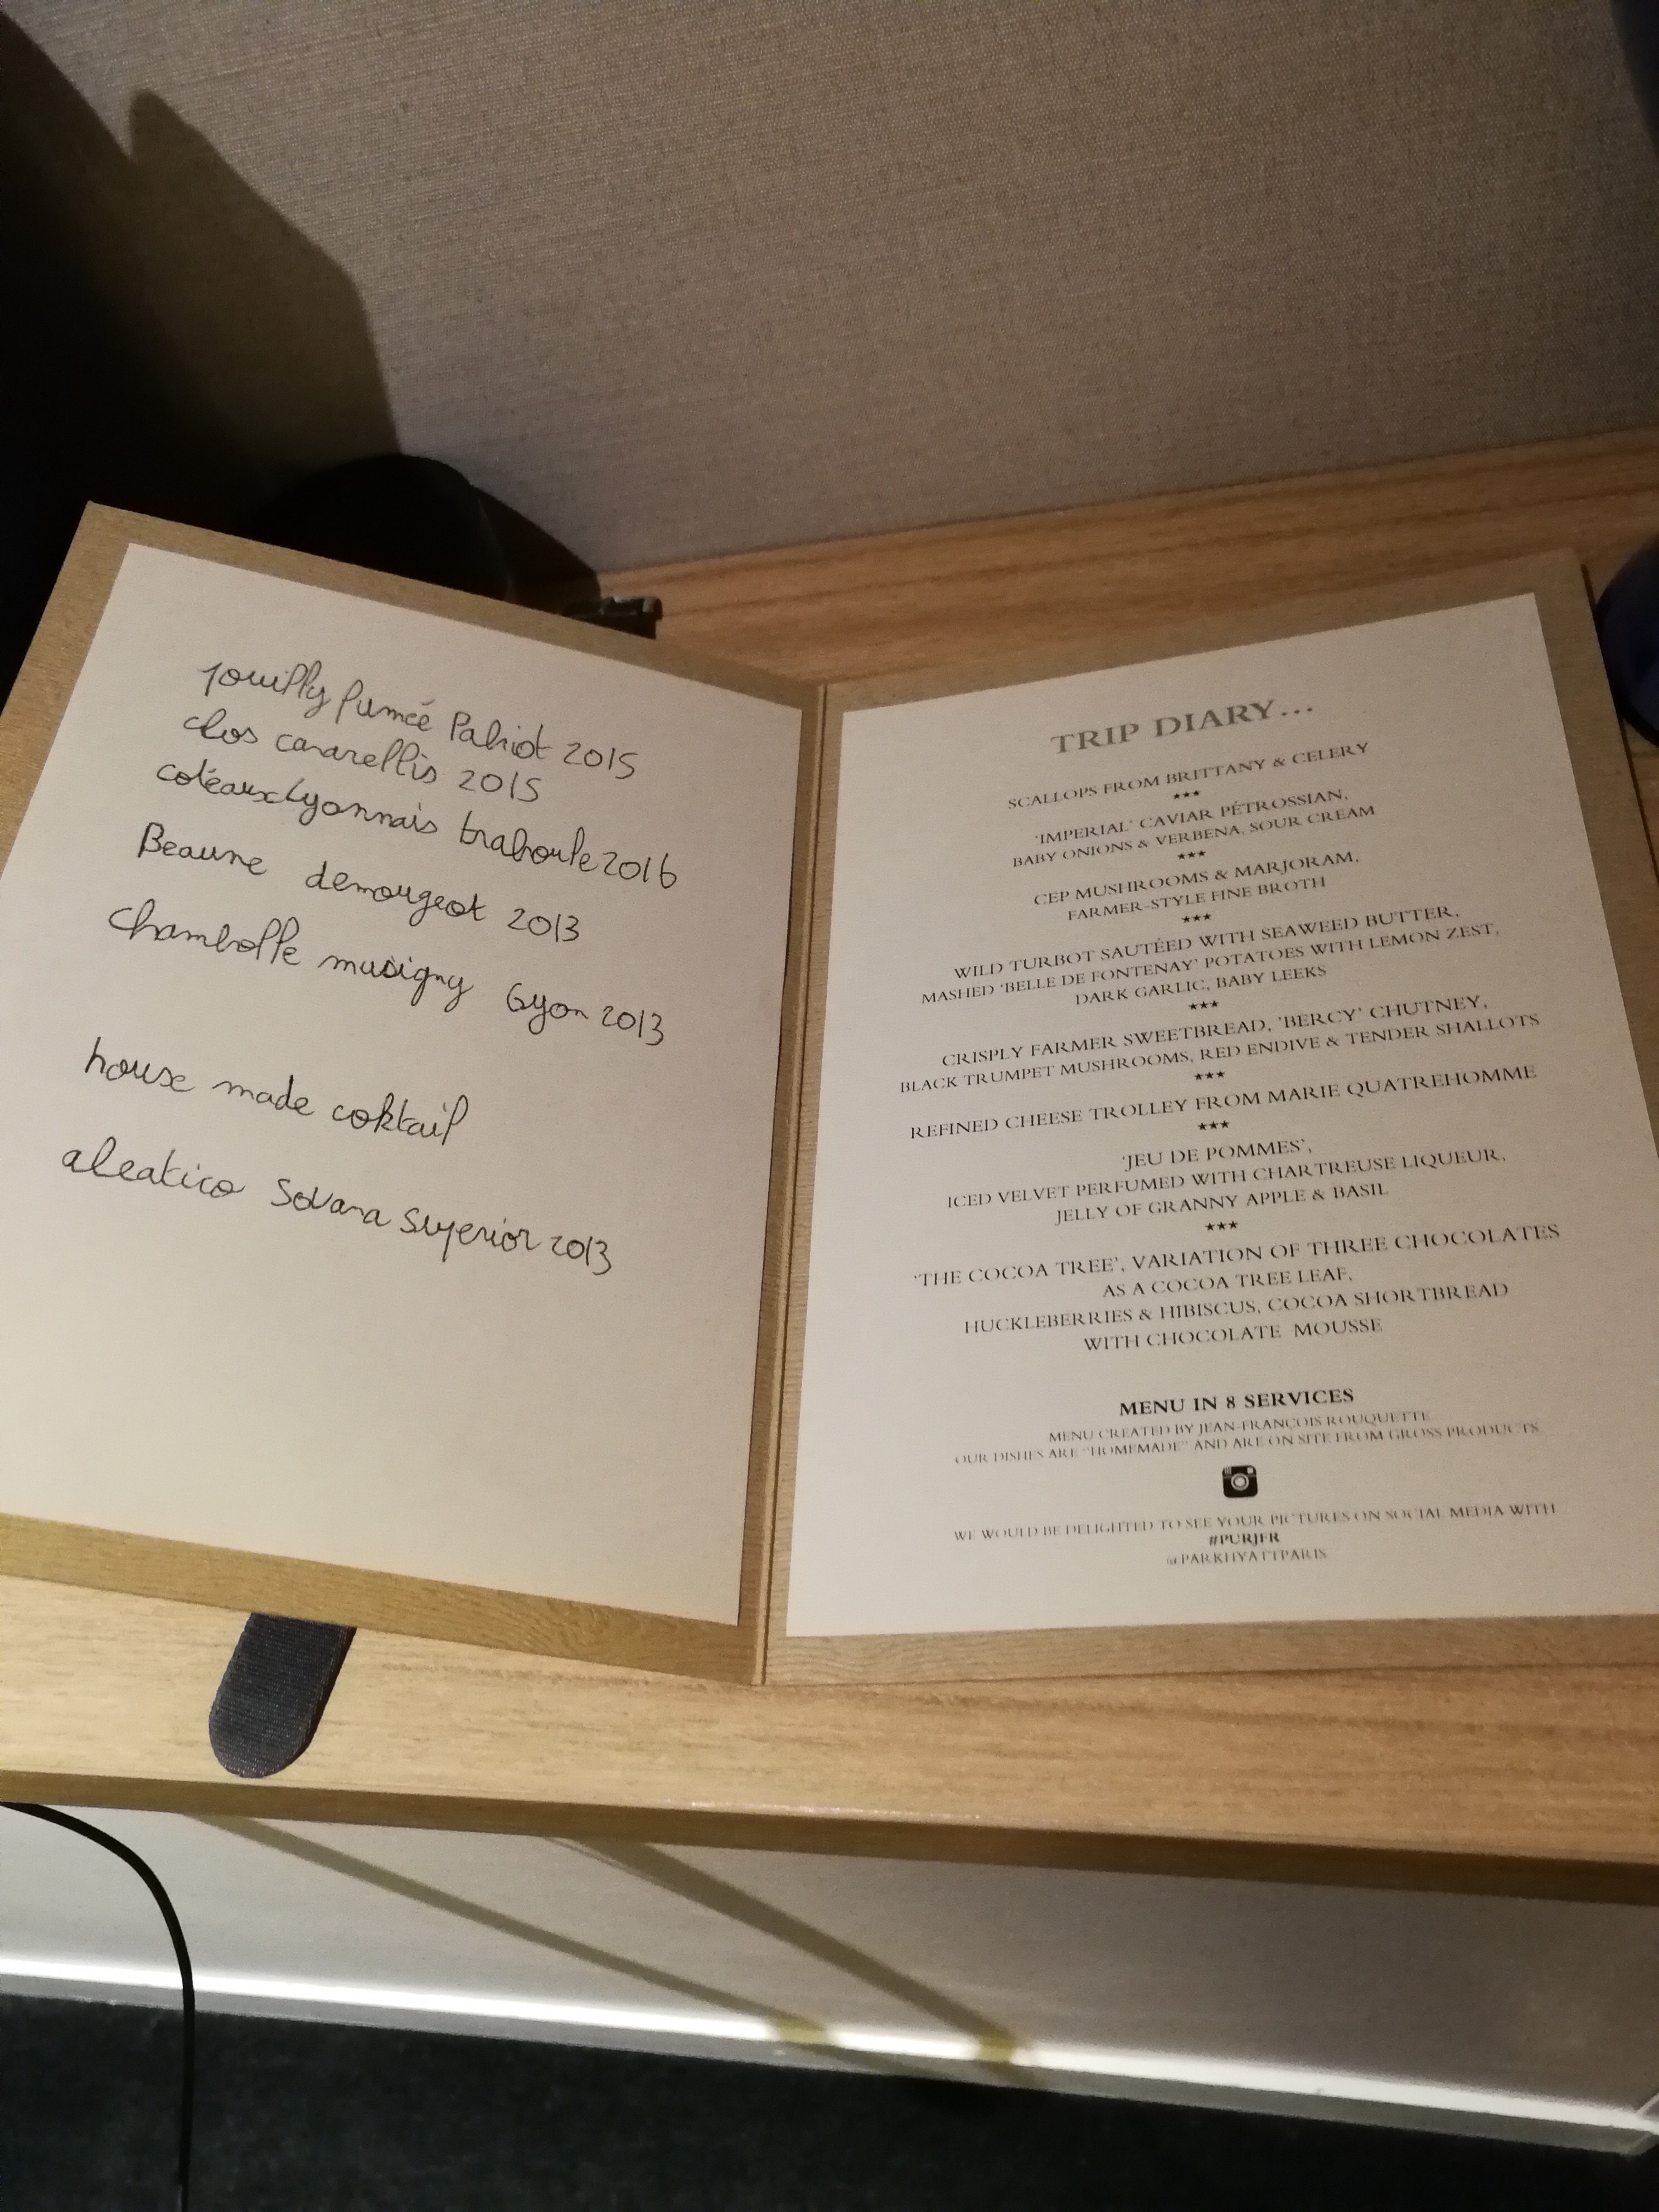 pouilly fumée Pabiot 2015
clos canarellis 2015
coteaux Lyonnais traboule 2016
Beaune demougeot 2013
Chambolle musigny Gyon 2013
house made coktail
aleatico Sovana Superior 2013
TRIP DIARY...
SCALLOPS FROM BRITTANY & CELERY
***
'IMPERIAL' CAVIAR PÉTROSSIAN,
BABY ONIONS & VERBENA, SOUR CREAM
***
CEP MUSHROOMS & MARJORAM,
FARMER-STYLE FINE BROTH
***
WILD TURBOT SAUTÉED WITH SEAWEED BUTTER,
MASHED 'BELLE DE FONTENAY' POTATOES WITH LEMON ZEST,
DARK GARLIC, BABY LEEKS
***
CRISPLY FARMER SWEETBREAD, 'BERCY' CHUTNEY,
BLACK TRUMPET MUSHROOMS, RED ENDIVE & TENDER SHALLOTS
***
REFINED CHEESE TROLLEY FROM MARIE QUATREHOMME
***
'JEU DE POMMES',
ICED VELVET PERFUMED WITH CHARTREUSE LIQUEUR,
JELLY OF GRANNY APPLE & BASIL
***
'THE COCOA TREE', VARIATION OF THREE CHOCOLATES
AS A COCOA TREE LEAF,
HUCKLEBERRIES & HIBISCUS, COCOA SHORTBREAD
WITH CHOCOLATE MOUSSE
MENU IN 8 SERVICES
MENU CREATED BY JEAN-FRANÇOIS ROUQUETTE
OUR DISHES ARE "HOMEMADE" AND ARE ON SITE FROM GROSS PRODUCTS
WE WOULD BE DELIGHTED TO SEE YOUR PICTURES ON SOCIAL MEDIA WITH
#PURJFR
@PARKHYATTPARIS